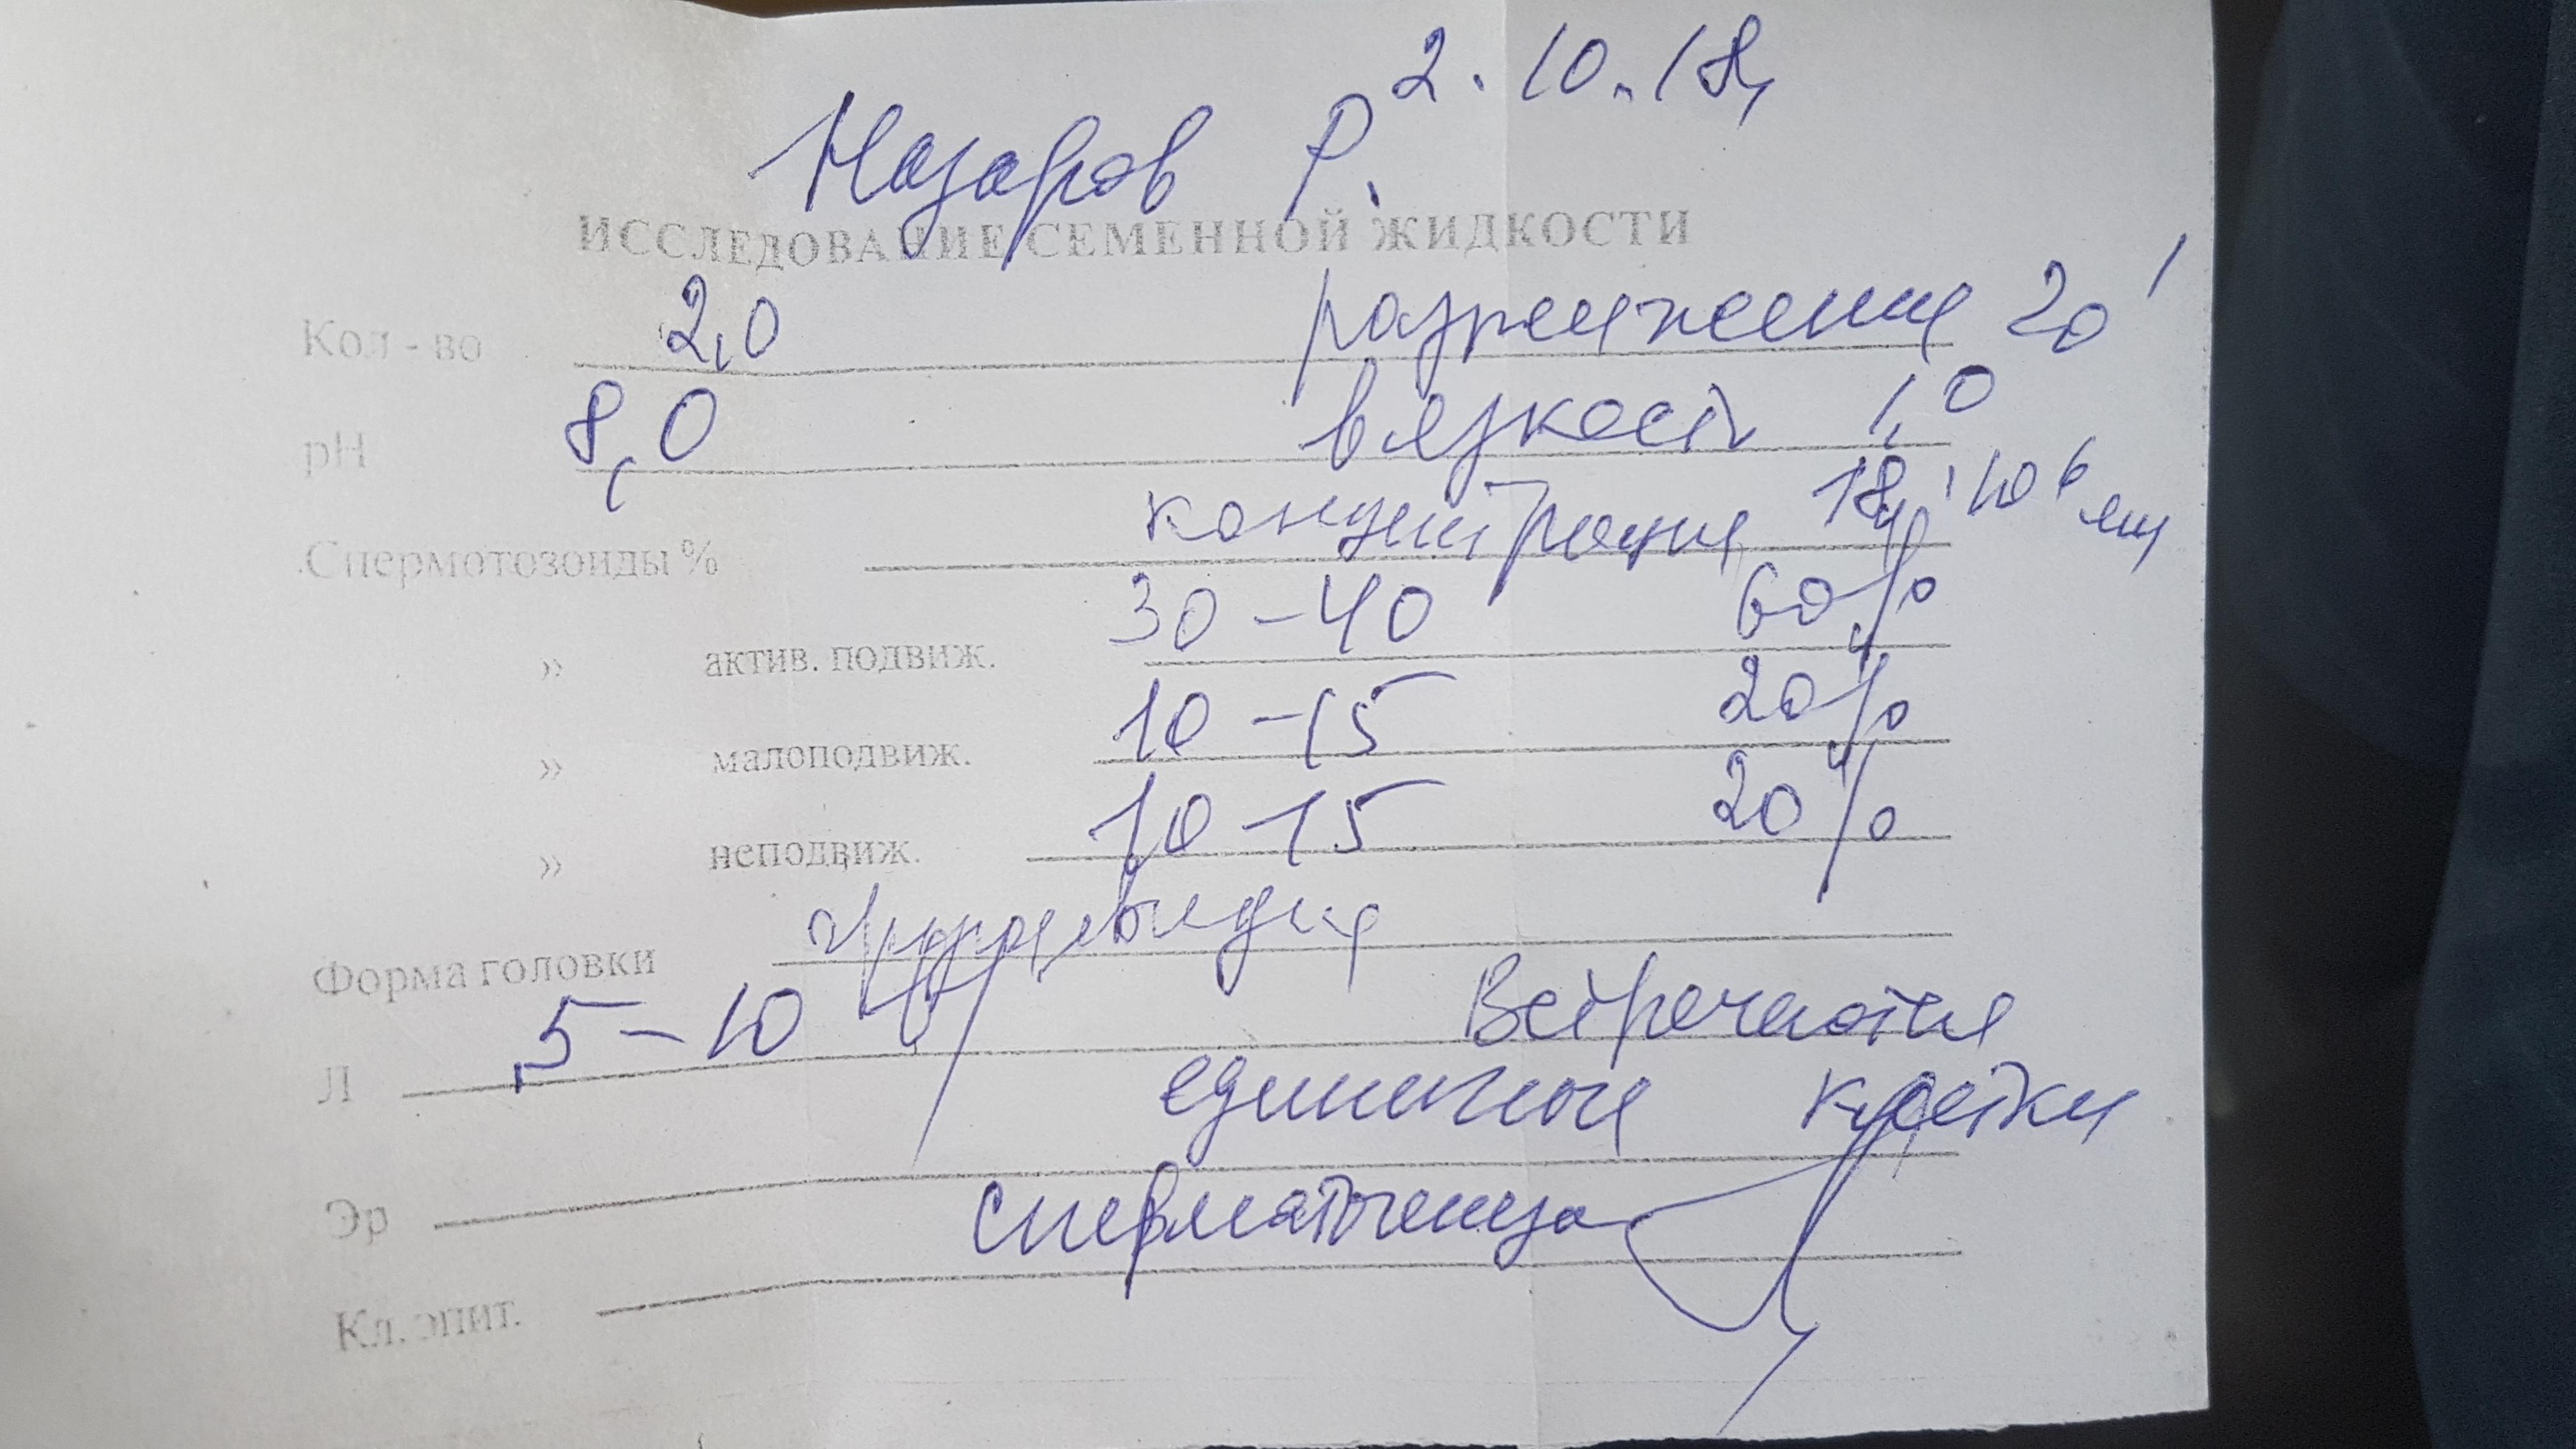 2.10.18
Назаров Р.
ИССЛЕДОВАНИЕ СЕМЕННОЙ ЖИДКОСТИ
Кол - во 2,0 разжижение 20'
pH 8,0 вязкость 1,0
Спермотозоиды % концентрация 18 · 10⁶
» актив. подвиж. 30 – 40 60%
» малоподвиж. 10 – 15 20%
» неподвиж. 10 – 15 20%
Форма головки
Л 5 – 10 Встречаются
единичные клетки
Эр
сперматогенеза
Кл. эпит.